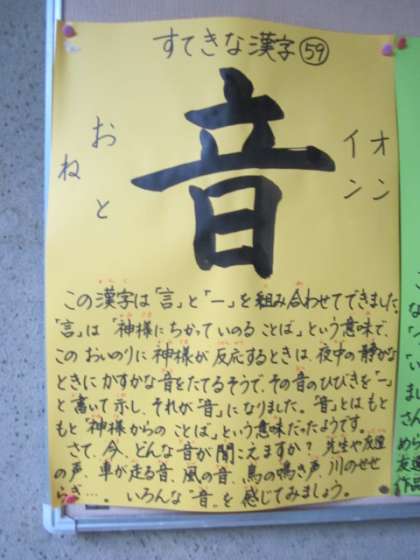 すてきな漢字59
音
オン
イン
おと
ね
この漢字は「言」と「一」を組み合わせてできました。
「言」は「神様にちかっていのることば」という意味で、
このおいのりに神様が反応するときは、夜中の静かな
ときにかすかな音をたてるそうで、その音のひびきを「一」
と書いて示し、それが"音"になりました。"音"とはもと
もと「神様からのことば」という意味だったようです。
さて、今、どんな音が聞こえますか？先生や友達
の声、車が走る音、風の音、鳥の鳴き声、川のせせ
らぎ…。いろんな"音"を感じてみましょう。